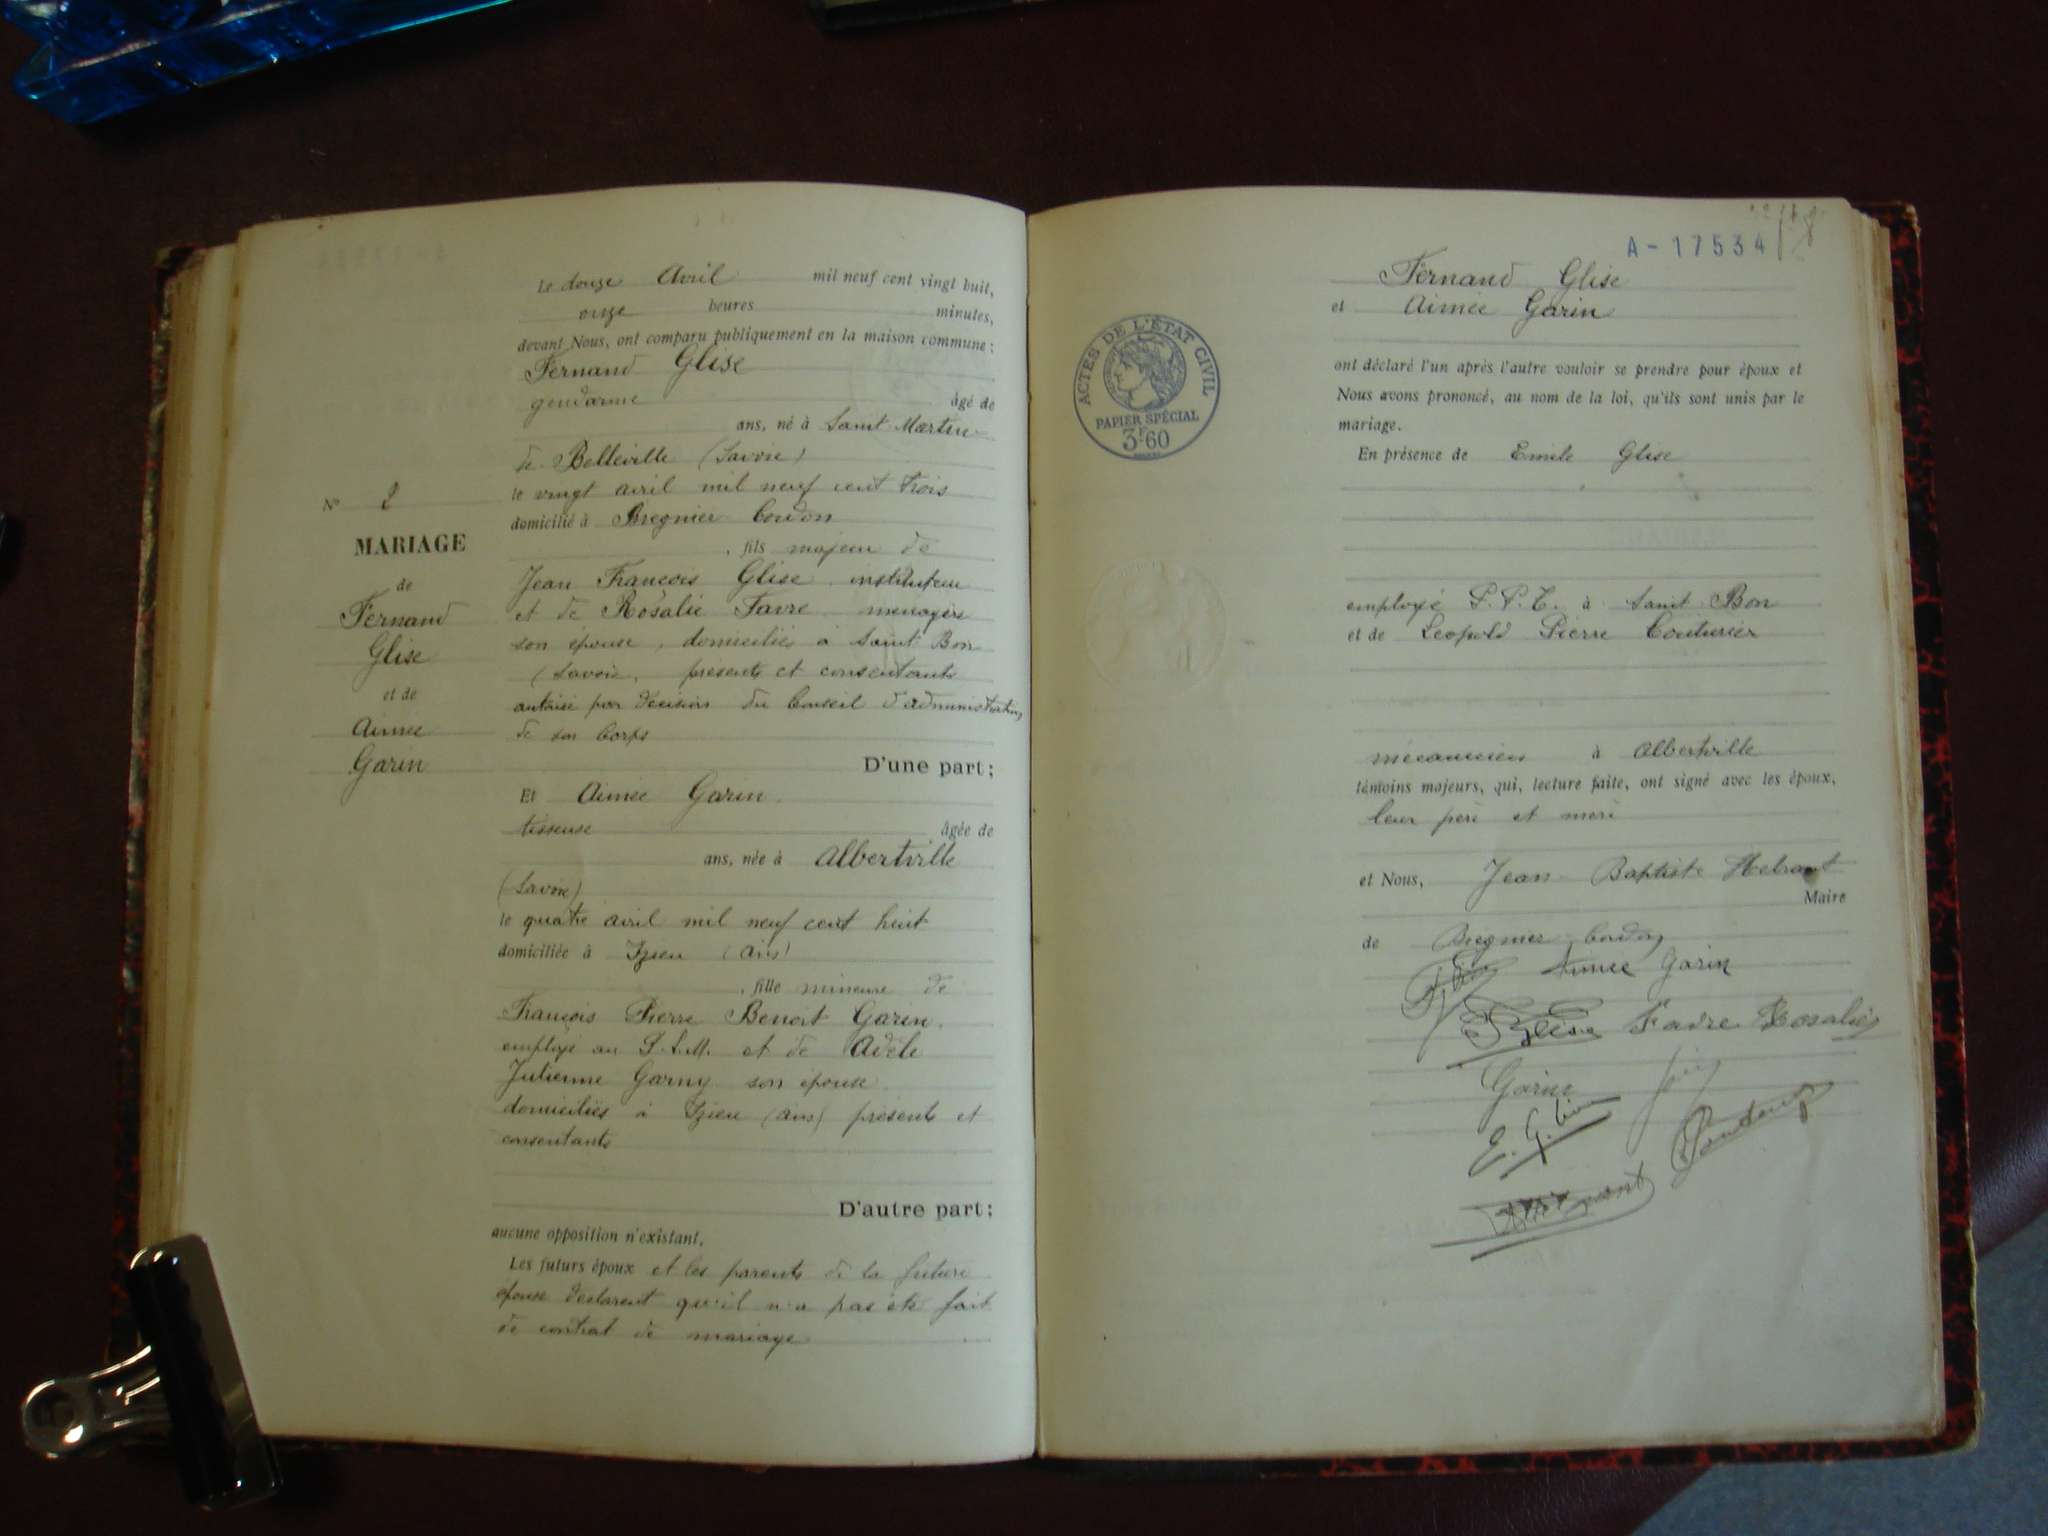 Le douze Avril mil neuf cent vingt huit,
onze heures minutes,
devant Nous, ont comparu publiquement en la maison commune :
Fernand Glise
gendarme âgé de
ans, né à Saint Martin
de Belleville (Savoie)
le vingt avril mil neuf cent trois
domicilié à Bregnier Cordon
, fils majeur de
Jean François Glise instituteur
et de Rosalie Favre ménagère
son épouse, domiciliés à Saint Bon
(Savoie, présents et consentants
autorisé par décision du Conseil d'administration
de son Corps
D'une part ;
N° 2
MARIAGE
de
Fernand
Glise
et de
Aimée
Garin
Et Aimée Garin
tisseuse âgée de
ans, née à Albertville
(Savoie)
le quatre avril mil neuf cent huit
domiciliée à Izieu (Ain)
, fille mineure de
François Pierre Benoit Garin,
employé au P.L.M. et de Adèle
Julienne Garny son épouse
domiciliés à Izieu (Ain) présents et
consentants
D'autre part ;
aucune opposition n'existant.
Les futurs époux et les parents de la future
épouse déclarent qu'il n'a pas été fait
de contrat de mariage
A - 17534
Fernand Glise
et Aimée Garin
ACTES DE L'ÉTAT CIVIL
PAPIER SPÉCIAL
3F60
ont déclaré l'un après l'autre vouloir se prendre pour époux et
Nous avons prononcé, au nom de la loi, qu'ils sont unis par le
mariage.
En présence de Emile Glise
employé P.T.T. à Saint Bon
et de Leopold Pierre Couturier
mécanicien à Albertville
témoins majeurs, qui, lecture faite, ont signé avec les époux,
leur père et mère
et Nous, Jean Baptiste
Maire
de Bregnier Cordon
Aimée Garin
Glise Favre Rosalie
Garin